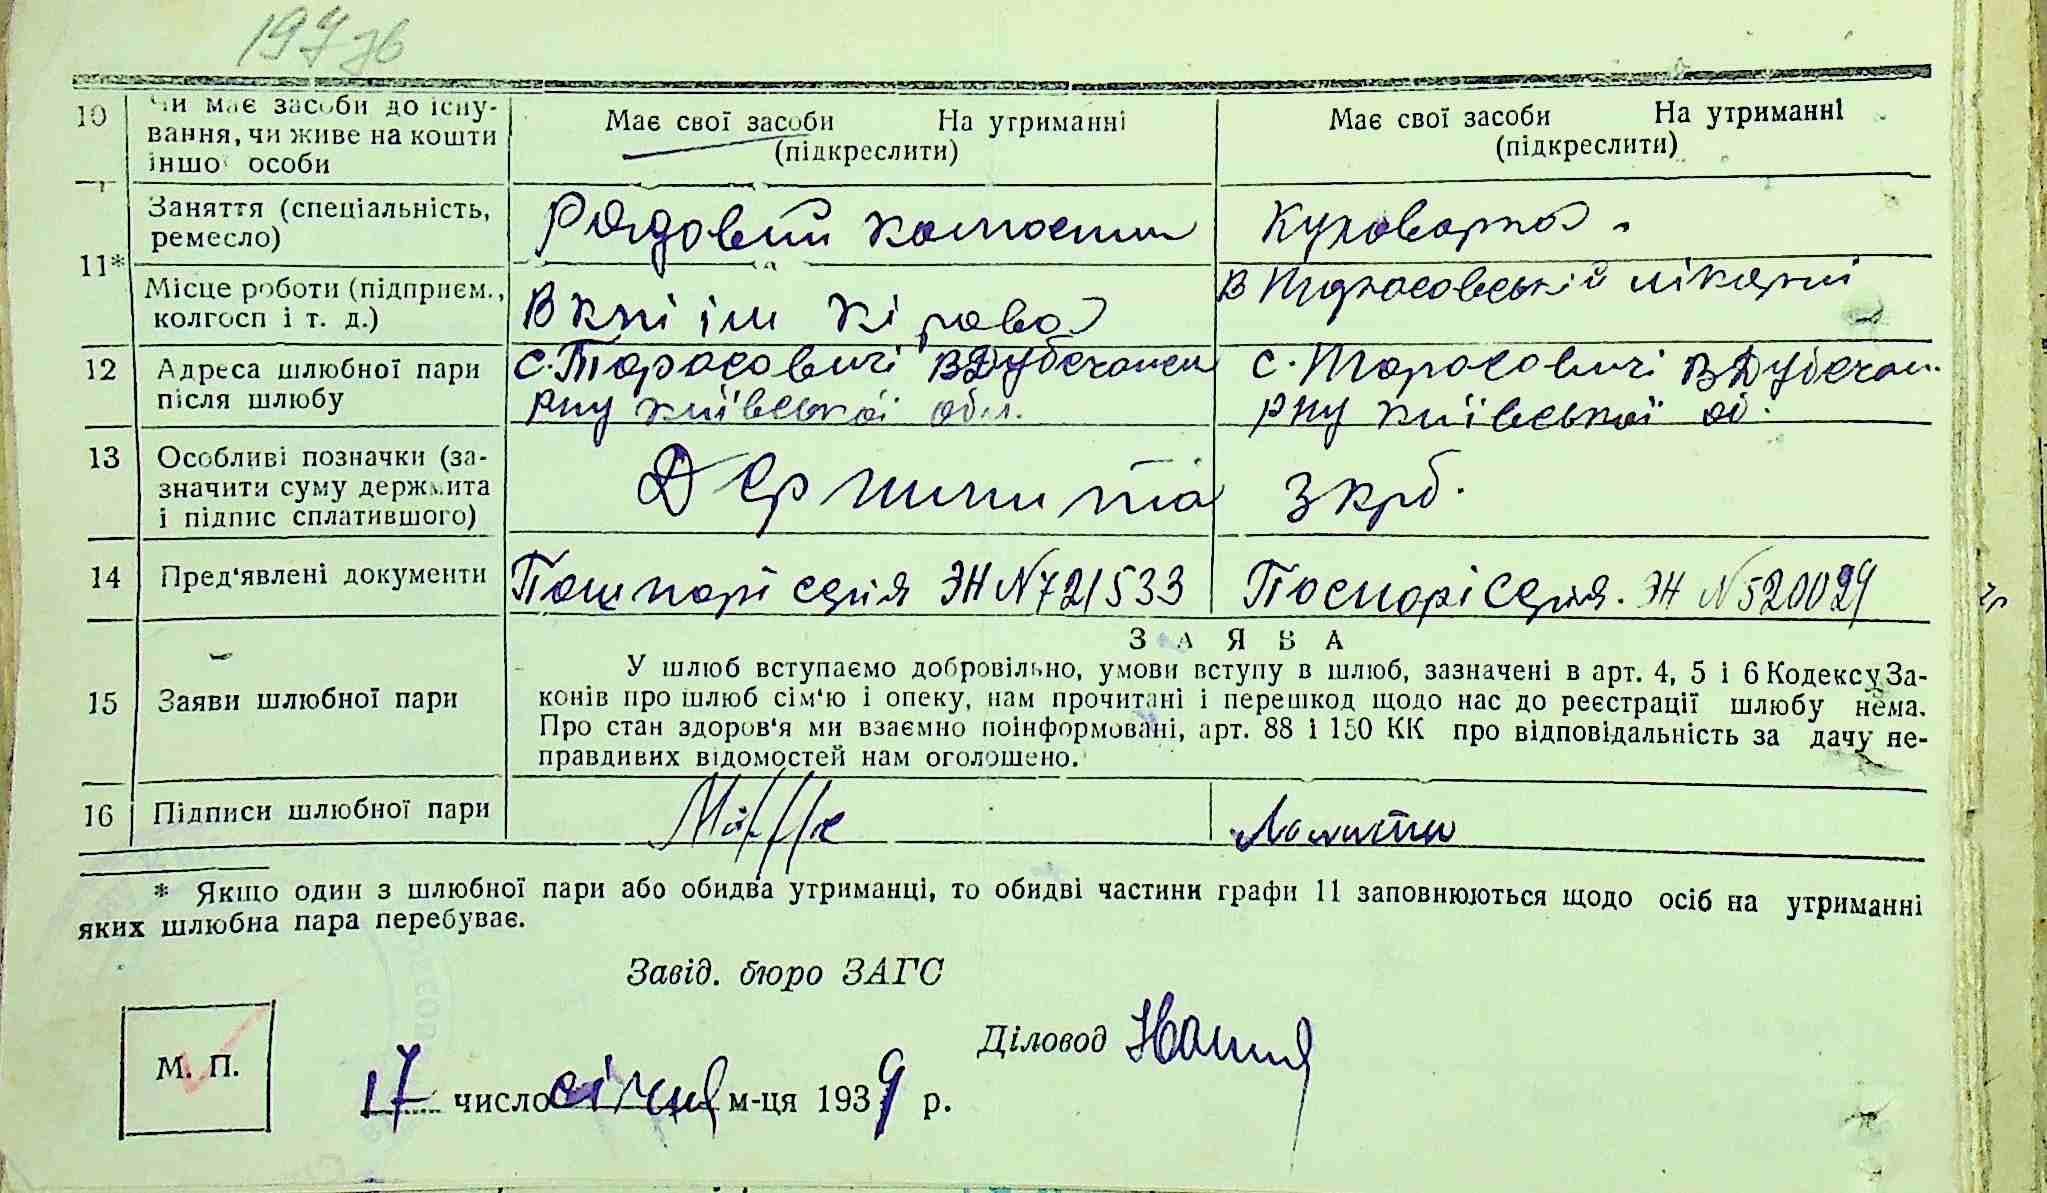 197 зв
10 Чи має засоби до існування, чи живе на кошти іншої особи
Має свої засоби На утриманні (підкреслити)
Має свої засоби На утриманні (підкреслити)
11* Заняття (спеціальність, ремесло)
Рядовий
Куховарка.
Місце роботи (підприєм., колгосп і т. д.)
В к-пі ім Кірова
В Тарасовській лікарні
12 Адреса шлюбної пари після шлюбу
с. Тарасовичі В Дубечанськ
р-ну Київської обл.
с. Тарасовичі В Дубечан.
р-ну Київської об.
13 Особливі позначки (зазначити суму держмита і підпис сплатившого)
Держмита 3 крб.
14 Пред'явлені документи
Пашпорт серія ЭН №721533
Паспорт серія. ЭН №520029
ЗАЯВА
15 Заяви шлюбної пари
У шлюб вступаємо добровільно, умови вступу в шлюб, зазначені в арт. 4, 5 і 6 Кодексу За-
конів про шлюб сім'ю і опеку, нам прочитані і перешкод щодо нас до реєстрації шлюбу нема.
Про стан здоров'я ми взаємно поінформовані, арт. 88 і 150 КК про відповідальність за дачу не-
правдивих відомостей нам оголошено.
16 Підписи шлюбної пари
* Якщо один з шлюбної пари або обидва утриманці, то обидві частини графи 11 заповнюються щодо осіб на утриманні
яких шлюбна пара перебуває.
Завід. бюро ЗАГС
Діловод
М. П.
17 число січня м-ця 1939 р.